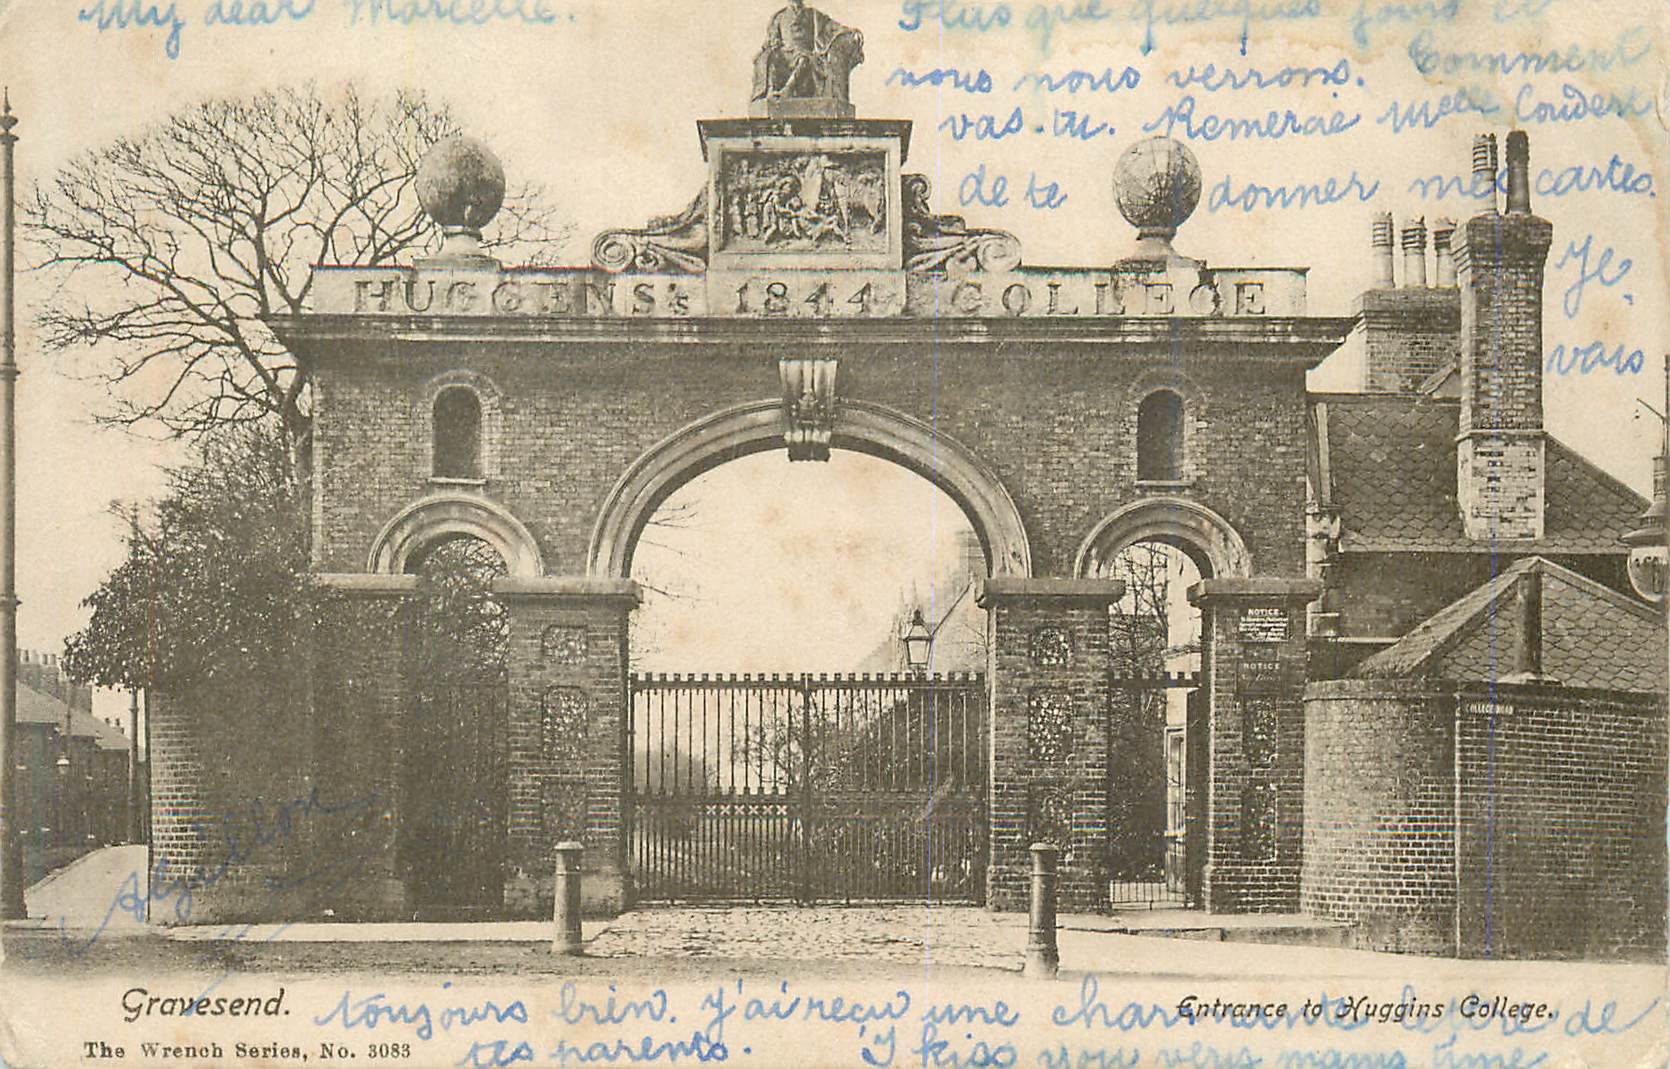 My dear Marcelle.
Plus que quelques jours et
nous nous verrons. Comment
vas-tu. Remercie Melle Coudert
de te donner mes cartes.
Je
vais
HUGGENS's 1844 COLLEGE
NOTICE.
NOTICE
COLLEGE ROAD
Gravesend.
Entrance to Huggins College.
toujours bien. J'ai reçu une charmante lettre de
The Wrench Series, No. 3083
tes parents. I kiss you very many time